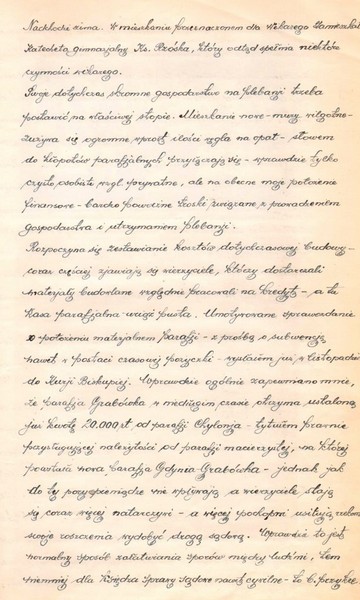 Nadchodzi zima. W mieszkaniu przeznaczonem dla wikarego zamieszkał
Katecheta gimnazjalny Ks. który odtąd spełnia niektóre
czynności wikarego.
Swoje dotychczas skromne gospodarstwo na plebanji trzeba
postawić na właściwej stopie. Mieszkanie nowe - mury wilgotne -
zużywa się ogromne wprost ilości węgla na opał - słowem
do kłopotów parafjalnych przyłączają się - wprawdzie tylko
czysto osobiste wzgl. prywatne, ale na obecne moje położenie
finansowe - bardzo poważne troski związane z prowadzeniem
gospodarstwa i utrzymaniem plebanji.
Rozpoczyna się zestawianie kosztów dotychczasowej budowy -
coraz częściej zjawiają się wierzyciele, którzy dostarczali
materjały budowlane względnie pracowali na kredyty - a tu
Kasa parafjalna - wciąż pusta. Umotywowane sprawozdanie
o położeniu materjalnem parafji - z prośbą o subwencję
nawet w postaci czasowej pożyczki - wysłałem już w listopadzie
do Kurji Biskupiej. Wprawdzie ogólnie zapewniano mnie,
że parafja Grabówko w niedługim czasie otrzyma ustaloną
już kwotę 20.000 zł. od parafji Chylonja - tytułem prawnie
przysługującej należytości od parafji macierzystej, na której
powstała nowa parafja Gdynia-Grabówko - jednak jak
do tej pory pieniądze nie wpływają a wierzyciele stają
się coraz więcej natarczywi - a więcej podchopni usiłują
swoje roszczenia wydobyć drogą sądową. Wprawdzie to jest
normalny sposób załatwiania sporów między ludźmi, tem
niemniej dla Księdza sprawy sądowe nawet cywilne - są b. przykre